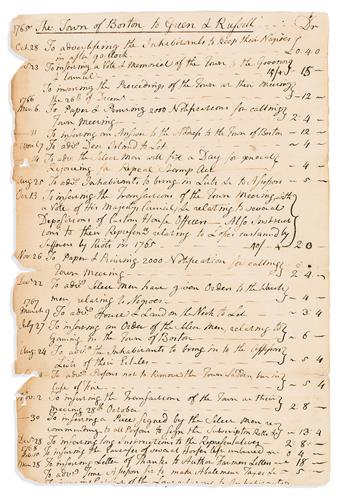 1765 The Town of Boston to Green & Russell Dr
Oct 28 To advertising the Inhabitants to keep their Negroes
in after 9 oClock £0. 4. 0
23 To inserting a Vote & Memorial of the Town to the Governor
& Council 15 -
To inserting the Proceedings of the Town at their meeting
the 26th of Decem 12 -
1766
Mar 6 To Paper & Printing 2000 Notifications for calling
Town Meeting 2. 4 -
31 To inserting an Answer to the Address to the Town of Boston - 12 -
17 To advg Deer Island to Let - 4 -
To advg the Select Men will fix a Day for general
Rejoicing for Repeal Stamp Act - 4 -
Aug 25 To advg Inhabitants to bring in Lists &c to Assessors - 5 -
Oct 13 To inserting the Transactions of the Town Meeting with
a Vote of His Majesty's relating to several
Depositions of Custom House Officers - Also Instruc
tions to their Represents relating to Losses sustained by
Sufferers by Riots in 1765
Nov 26 To Paper & Printing 2000 Notification for calling
Town Meeting 2. 4 -
22 To advg Select Men have given Orders to the Watch
men relating to Negroes - 4 -
1767
March 9 To advg House & Land on the Neck to Let - 3. 4
July 27 To inserting an Order of the Select Men, relating to
gaming in the Town of Boston - 6 -
Aug 24 To advg the Inhabitants to bring in to the Assessors
Lists of their Estates - 5. 4
To advg Persons not to Remove the Town Ladders but in
Case of Fire - 5. 4
To inserting the Transactions of the Town at their
Meeting 28th October 2. 8 -
30 To inserting a Piece signed by the Select Men
recommending to all Persons to sign the Subscription Rolls &c - 13. 4
Dec 28 To inserting long Instructions to the Representatives 2. 8 -
1768
To inserting the of several Horses late imported - 0. 4
Mar 28 To inserting Letter of Thanks to Author Farmers Letters - 18 -
To advg Time Assessors for to make Abatement Taxes - 5